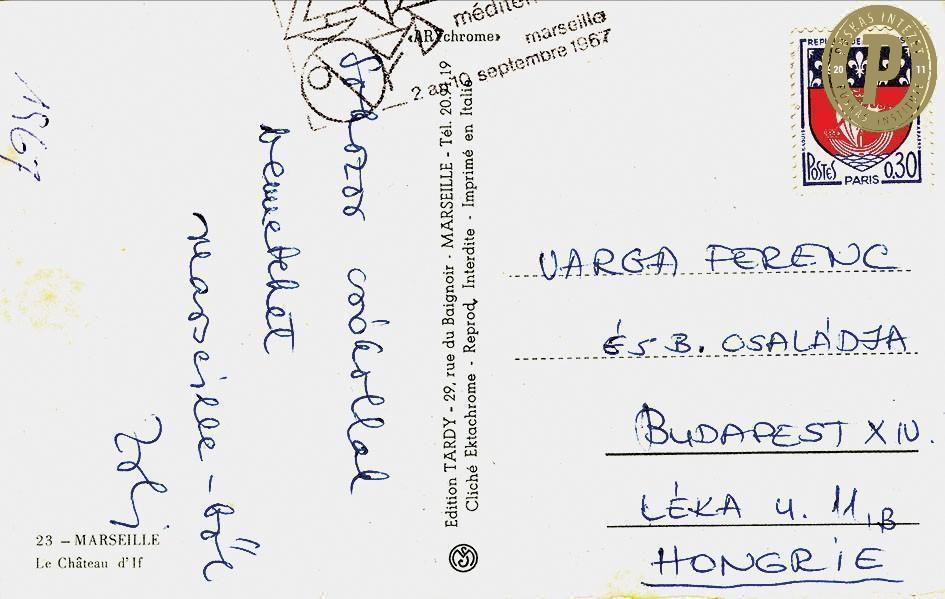 méditer
marseille
2 au 10 septembre 1967
«ARYchrome»
1967
Sokszor csókollak
benneteket
Marseille-ből
Zoli
23 – MARSEILLE
Le Château d'If
Edition TARDY - 29, rue du Baignoir - MARSEILLE - Tél. 20.91.19
Cliché Ektachrome - Reprod. Interdite - Imprimé en Italie
PUSKÁS INTÉZET
20 11
P
PUSKAS INSTITUTE
POSTES
PARIS
0,30
VARGA FERENC
ÉS B. CSALÁDJA
BUDAPEST XIV.
LÉKA U. 11/B
HONGRIE